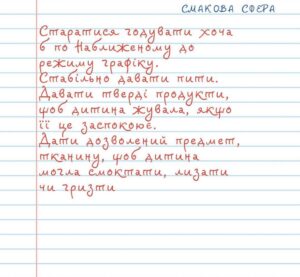 СМАКОВА СФЕРА
Старатися годувати хоча
б по наближеному до
режиму графіку.
Стабільно давати пити.
Давати тверді продукти,
щоб дитина жувала, якщо
її це заспокоює.
Дати дозволений предмет,
тканину, щоб дитина
могла смоктати, лизати
чи гризти